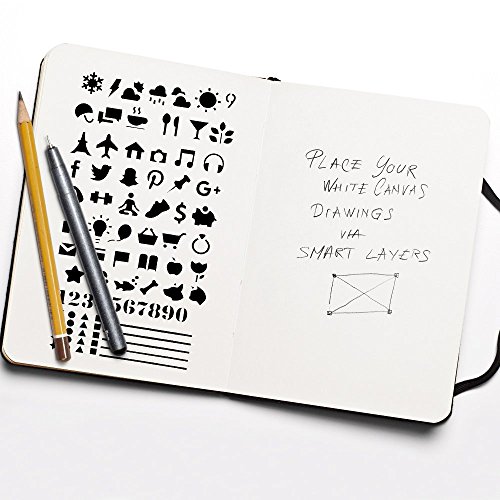 9
f P G+
$
123 567890
PLACE YOUR
WHITE CANVAS
DRAWINGS
VIA
SMART LAYERS